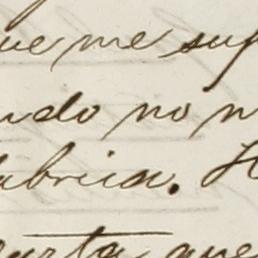 ue me suf
ndo no n
abrica. H
arta que